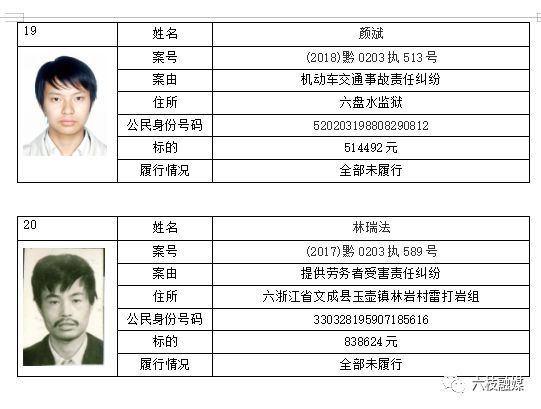 19 姓名 颜斌
案号 (2018)黔 0203 执 513 号
案由 机动车交通事故责任纠纷
住所 六盘水监狱
公民身份号码 520203198808290812
标的 514492 元
履行情况 全部未履行
20 姓名 林瑞法
案号 (2017)黔 0203 执 589 号
案由 提供劳务者受害责任纠纷
住所 六浙江省文成县玉壶镇林岩村雷打岩组
公民身份号码 330328195907185616
标的 838624 元
履行情况 全部未履行
六枝融媒